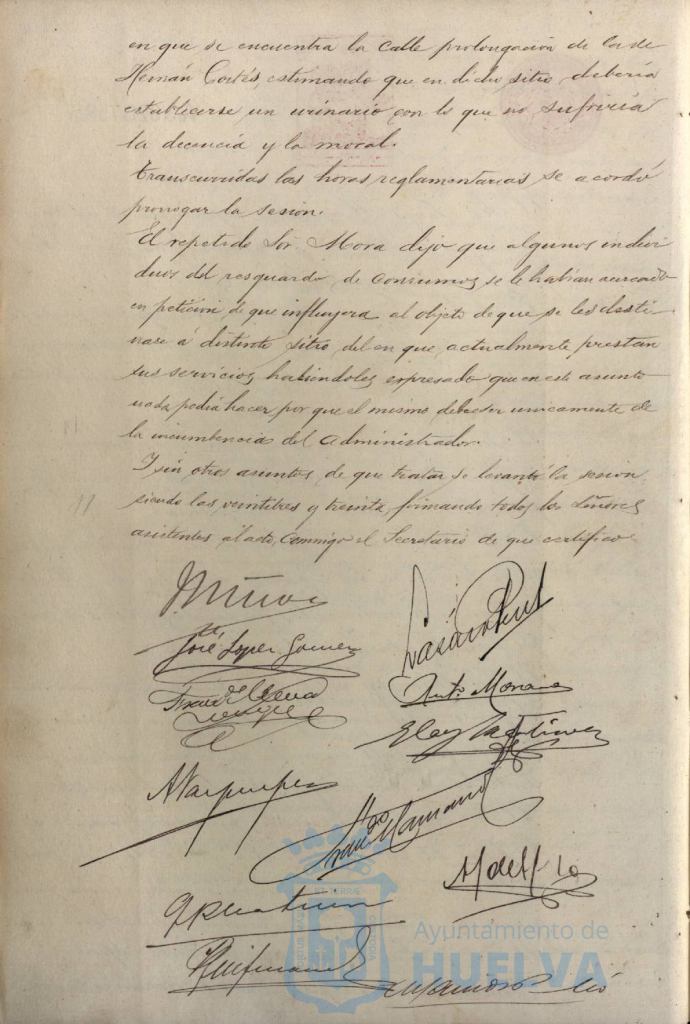 en que se encuentra la calle prolongación de la de
Hernán Cortés, estimando que en dicho sitio debería
establecerse un urinario con lo que no sufriría
la decencia y la moral.
Transcurridas las horas reglamentarias se acordó
prorrogar la sesion.
El repetido Sor. Mora dijo que algunos indivi
duos del resguardo de Consumos se le habían acercado
en petición de que influyera al objeto de que se les desti-
nase á distinto sitio del en que actualmente prestan
sus servicios, habiéndoles expresado que en este asunto
nada podía hacer por que el mismo debe ser unicamente de
la incumbencia del Administrador.
Y sin otros asuntos de que tratar se levantó la sesion
siendo las veintitres y treinta, firmando todos los Señores
asistentes al acto, conmigo el Secretario de que certifico
José Lopez Gomez
Anto. Morano
Eloy Martinez
Ayuntamiento de
HUELVA